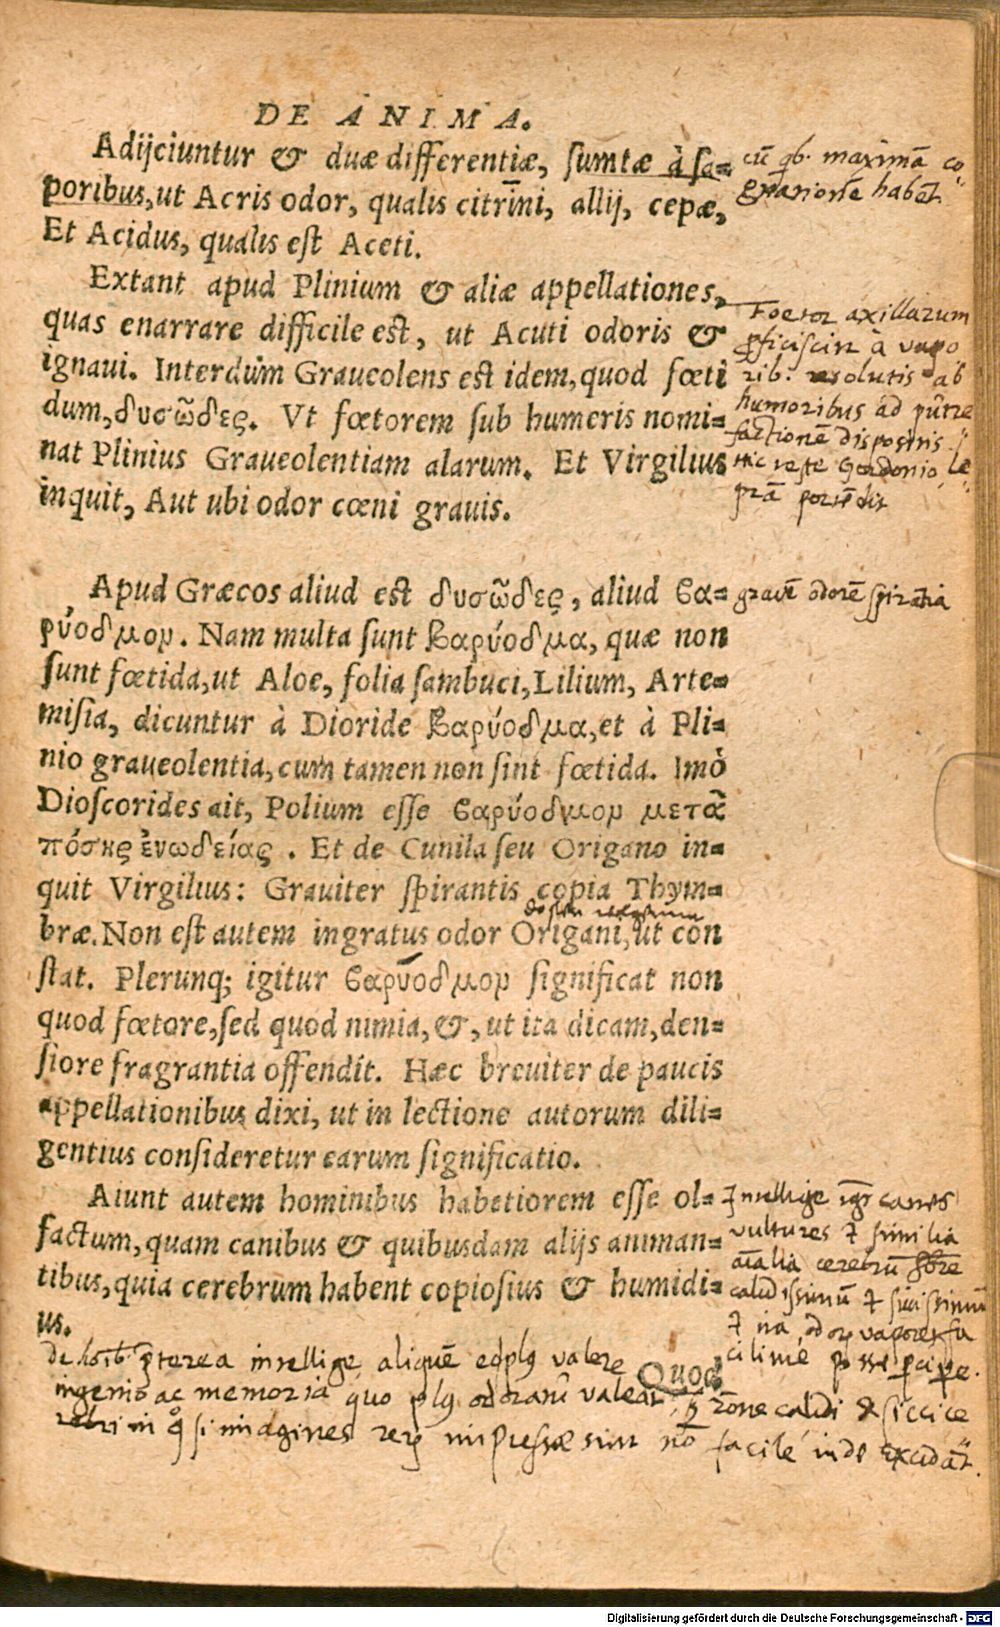 DE ANIMA.
Adijciuntur & duæ differentiæ, sumtæ à sa-
poribus, ut Acris odor, qualis citrini, allij, cepæ,
Et Acidus, qualis est Aceti.
cū qb. maximā co-
gnationē habēt
Extant apud Plinium & aliæ appellationes,
quas enarrare difficile est, ut Acuti odoris &
ignaui. Interdum Graueolens est idem, quod fœti
dum, δυσῶδες. Vt fœtorem sub humeris nomi-
nat Plinius Graueolentiam alarum. Et Virgilius
inquit, Aut ubi odor cœni grauis.
Foetor axillarum
à vapo
rib. resolutis ab
humoribus ad putre
factionē dispositis
hic teste Gordonio, le
prā portēdit
Apud Græcos aliud est δυσῶδες, aliud βα-
ρύοδμον. Nam multa sunt βαρύοδμα, quæ non
sunt fœtida, ut Aloe, folia sambuci, Lilium, Arte-
misia, dicuntur à Dioride βαρύοδμα, et à Pli-
nio graueolentia, cum tamen non sint fœtida. Imò
Dioscorides ait, Polium esse βαρύοδμον μετὰ
πόσης ἐυωδείας. Et de Cunila seu Origano in-
quit Virgilius: Grauiter spirantis copia Thym-
bræ. Non est autem ingratus odor Origani, ut con
stat. Plerunq; igitur βαρύοδμον significat non
quod fœtore, sed quod nimia, &, ut ita dicam, den-
siore fragrantia offendit. Hæc breuiter de paucis
appellationibus dixi, ut in lectione autorum dili-
gentius consideretur earum significatio.
gravē odorē spirātia
Aiunt autem hominibus habetiorem esse ol-
factum, quam canibus & quibusdam alijs animan-
tibus, quia cerebrum habent copiosius & humidi-
us.
Quod
Intellige canes
vultures et similia
aīalia cerebrū
calidissimū et siccissimū
et ita vapores fa
cilime posse pcipe.
de hoīb. pterea intellige aliquē valere
ingenio ac memoria quo odoratu valeat,
rōne calidi & sicci ce
rebri in si imagines impressæ sint nō facile inde excidāt.
Digitalisierung gefördert durch die Deutsche Forschungsgemeinschaft - DFG